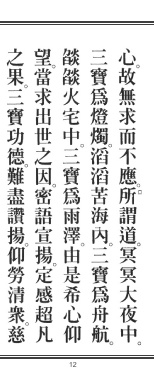 心。故無求而不應。所謂道。冥冥大夜中。
三寶爲燈燭。滔滔苦海內。三寶爲舟航。
燄燄火宅中。三寶爲雨澤。由是希心仰
望。當求出世之因。密語宣揚。定感超凡
之果。三寶功德。難盡讚揚。仰勞清衆。慈
12